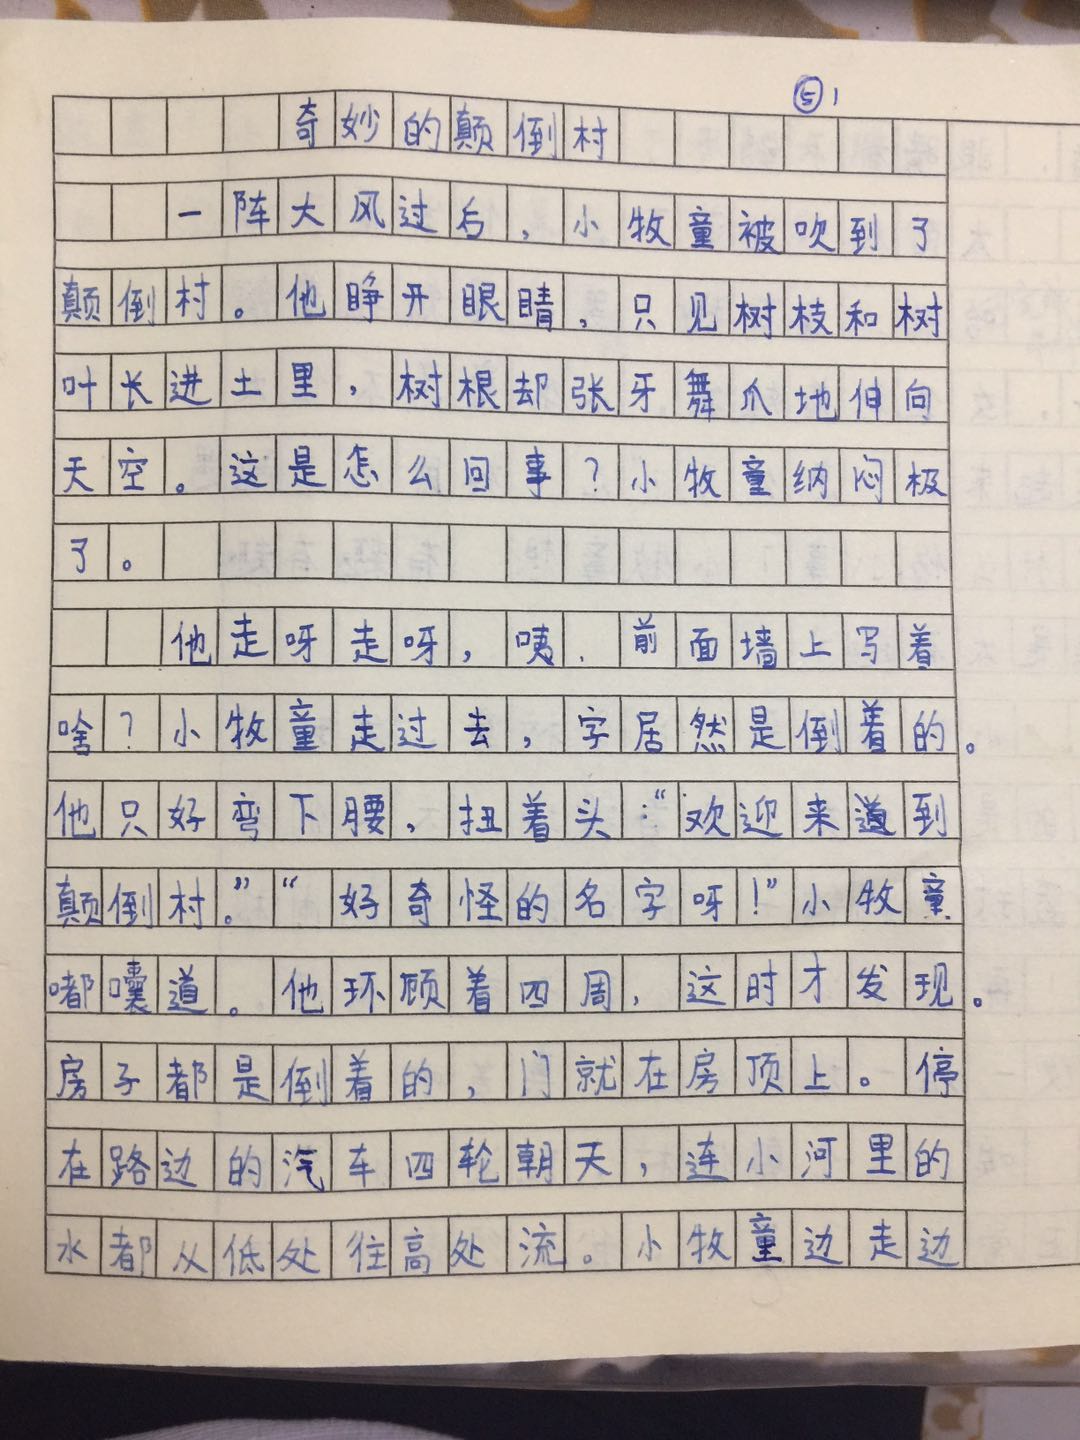 ⑤1
奇妙的颠倒村
一阵大风过后，小牧童被吹到了
颠倒村。他睁开眼睛，只见树枝和树
叶长进土里，树根却张牙舞爪地伸向
天空。这是怎么回事？小牧童纳闷极
了。
他走呀走呀，咦，前面墙上写着
啥？小牧童走过去，字居然是倒着的。
他只好弯下腰，扭着头：“欢迎来道到
颠倒村。”“好奇怪的名字呀！”小牧童
嘟囔道。他环顾着四周，这时才发现。
房子都是倒着的，门就在房顶上。停
在路边的汽车四轮朝天，连小河里的
水都从低处往高处流。小牧童边走边